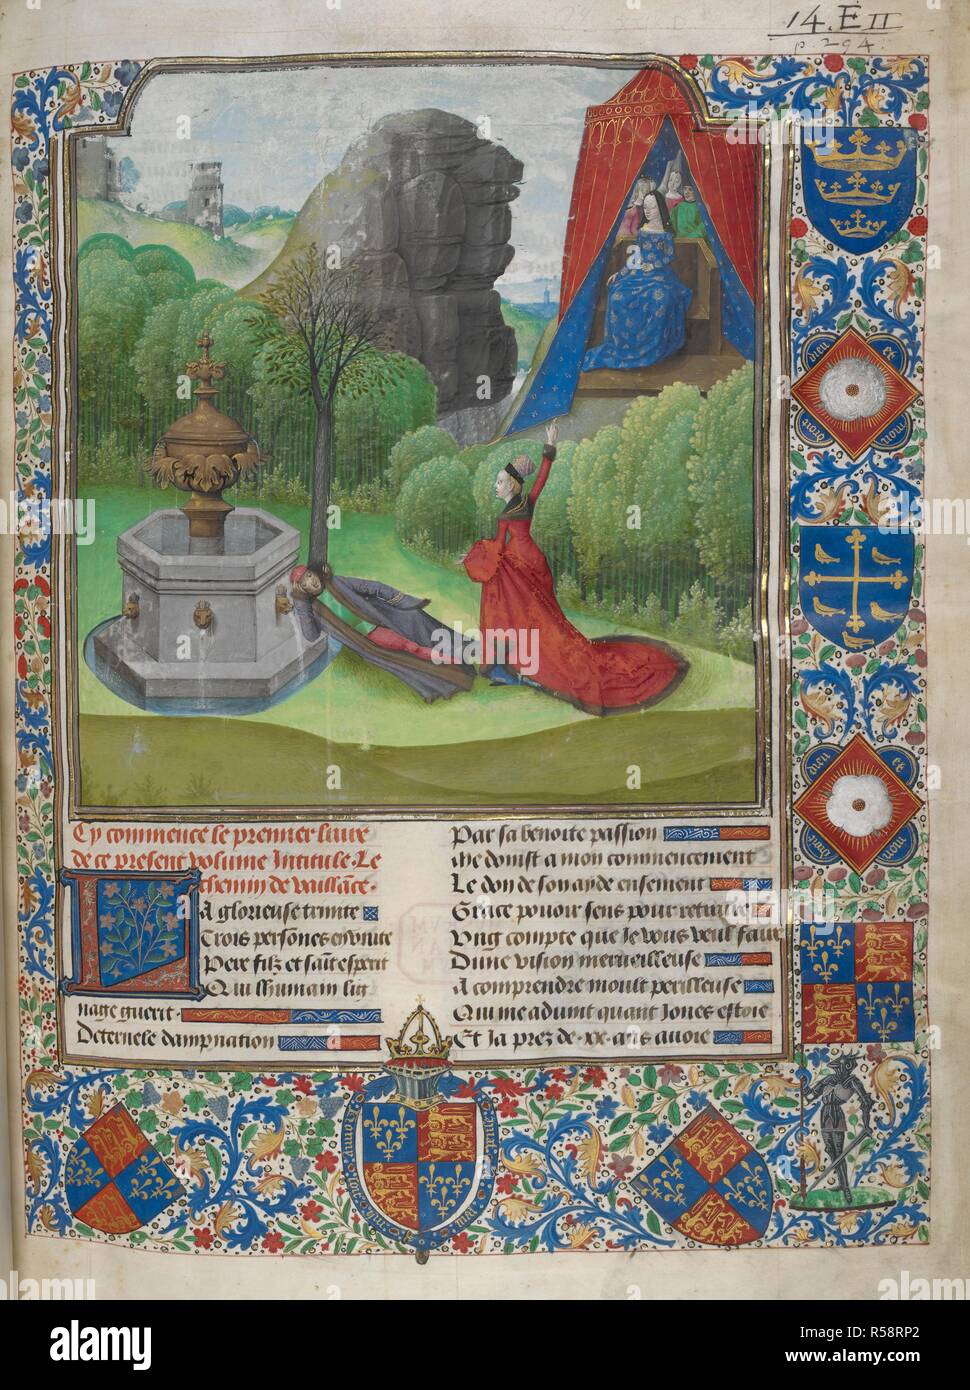 14. E II
p. 294.
Cy commence le premier livre
de ce present volume Intitule. Le
chemin de vaillance.
La glorieuse trinite
Trois personnes en unite
Pere filz et saint esperit
Qui lhumain lig
nage guerit
Deternele dampnation
Par sa benoite passion
me doinst a mon commencement
Le don de son aide ensement
Grace pouoir sens pour retraire
Ung compte que Je vous veul faire
Dune vision merveilleuse
A comprendre moult perilleuse
Qui me advint quant Jones estoie
Et Ja prez de .xx. ans avoie
dieu et
mon droit
dieu et
mon droit
alamy
alamy stock photo
R58RP2
www.alamy.com